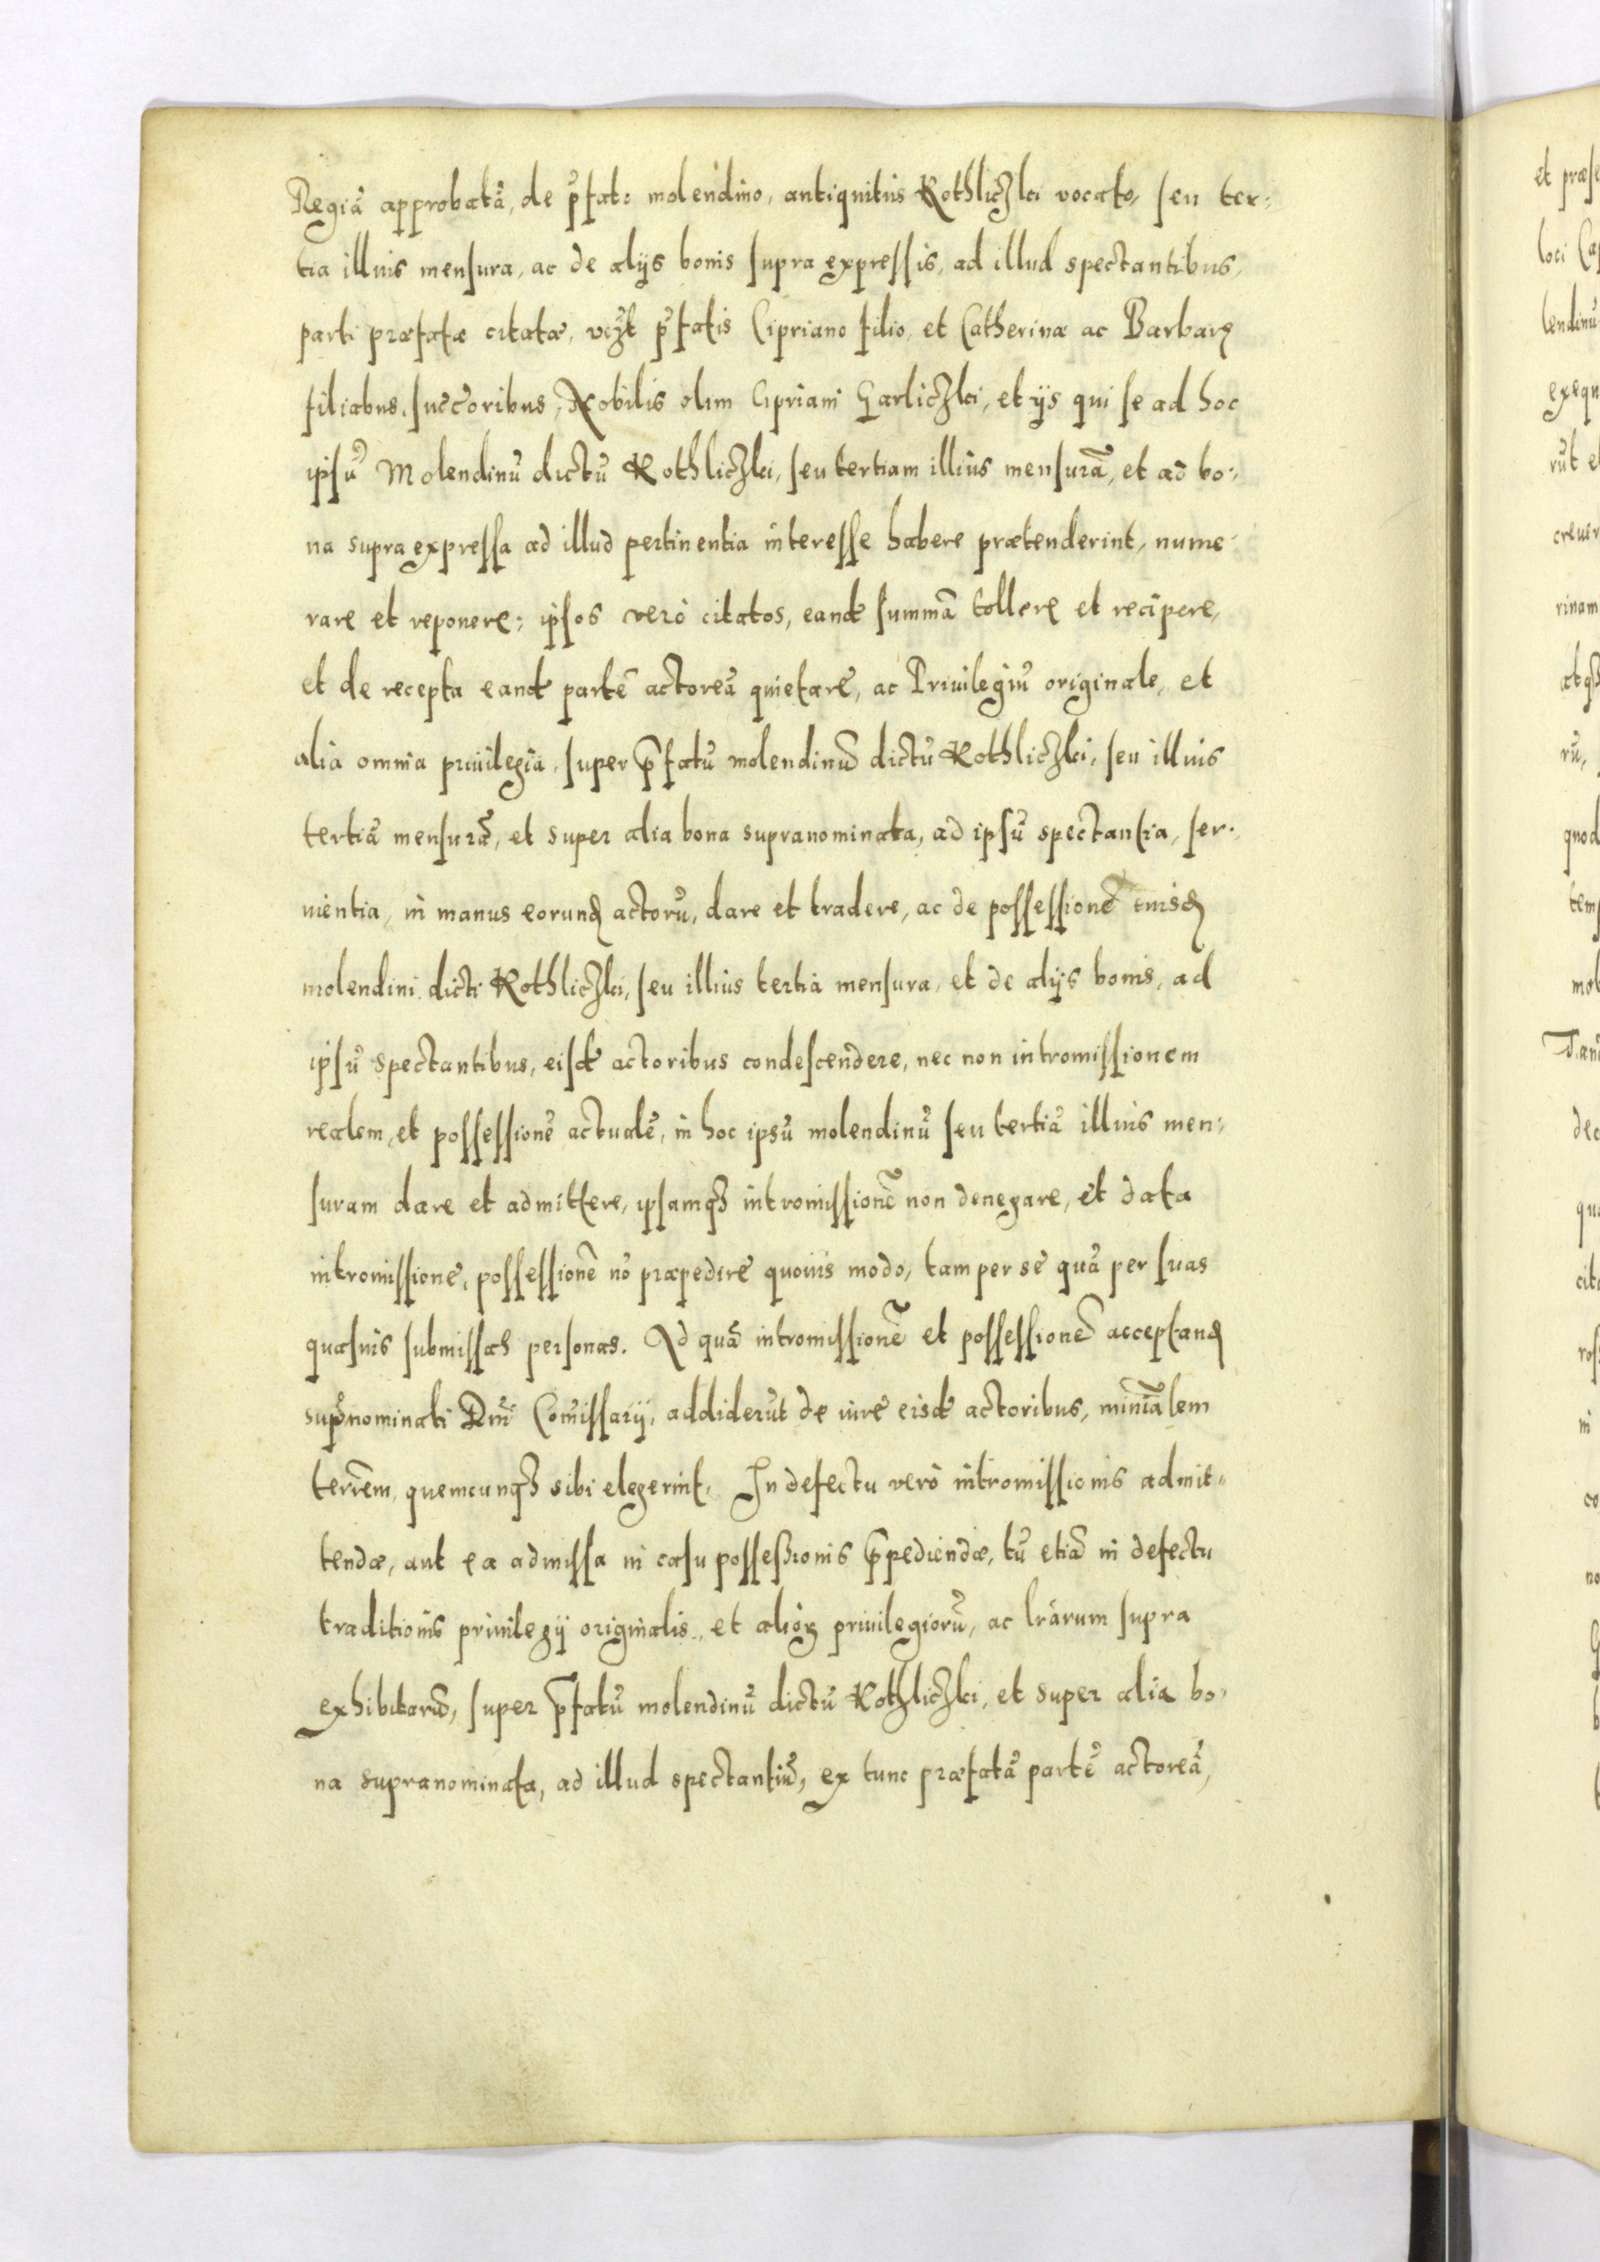 Regiā approbatā, de p̄fat: molendino, antiquitùs Kothliczki vocato, seu ter:
tia illius mensura, ac de alijs bonis supra expressis, ad illud spectantibus,
parti præfatæ citatæ, vczt p̄fatis Cipriano filio, et Catherinæ ac Barbaræ
filiabus, succ̄oribus, Nobilis olim Cipriani Garliczki, et ijs qui se ad hoc
ipsū Molendinū dictū Kothliczki, seu tertiam illius mensurā, et ad bo:
na supra expressa ad illud pertinentia interesse habere prætenderint, nume:
rare et reponere; ipsos verò citatos, eand summā tollere et recipere,
et de recepta eand partē actoreā quietare, ac Priuilegiū originale, et
alia omnia priuilegia, super p̄fatū molendinū dictū Kothliczki, seu illius
tertiā mensurā, et super alia bona supranominata, ad ipsū spectantia, ser:
uientia, in manus eorund actorū, dare et tradere, ac de possessione eiusd
molendini dicti Kothliczki, seu illius tertia mensura, et de alijs bonis, ad
ipsū spectantibus, eisd actoribus condescendere, nec non intromissionem
realem, et possessionē actualē, in hoc ipsū molendinū seu tertiā illius men:
suram dare et admittere, ipsamq3 intromissionē non denegare, et data
intromissione, possessionē nō præpedire quouis modo, tam per se quā per suas
quasuis submissas personas. Ad quā intromissionē et possessionē acceptand
sup̄nominati Dn̄i Com̄issarij, addiderūt de iure eisd actoribus, min̄ialem
terr̄em, quemcunq3 sibi elegerint. In defectu verò intromissionis admit:
tendæ, aut ea admissa in casu possessionis p̄pediendæ, tū etiā in defectu
traditionis priuilegij originalis, et alioꝝ priuilegiorū, ac lr̄arum supra
exhibitarū, super p̄fatū molendinū dictū Kothliczki, et super alia bo:
na supranominata, ad illud spectantiū, ex tunc præfatā partē actoreā,